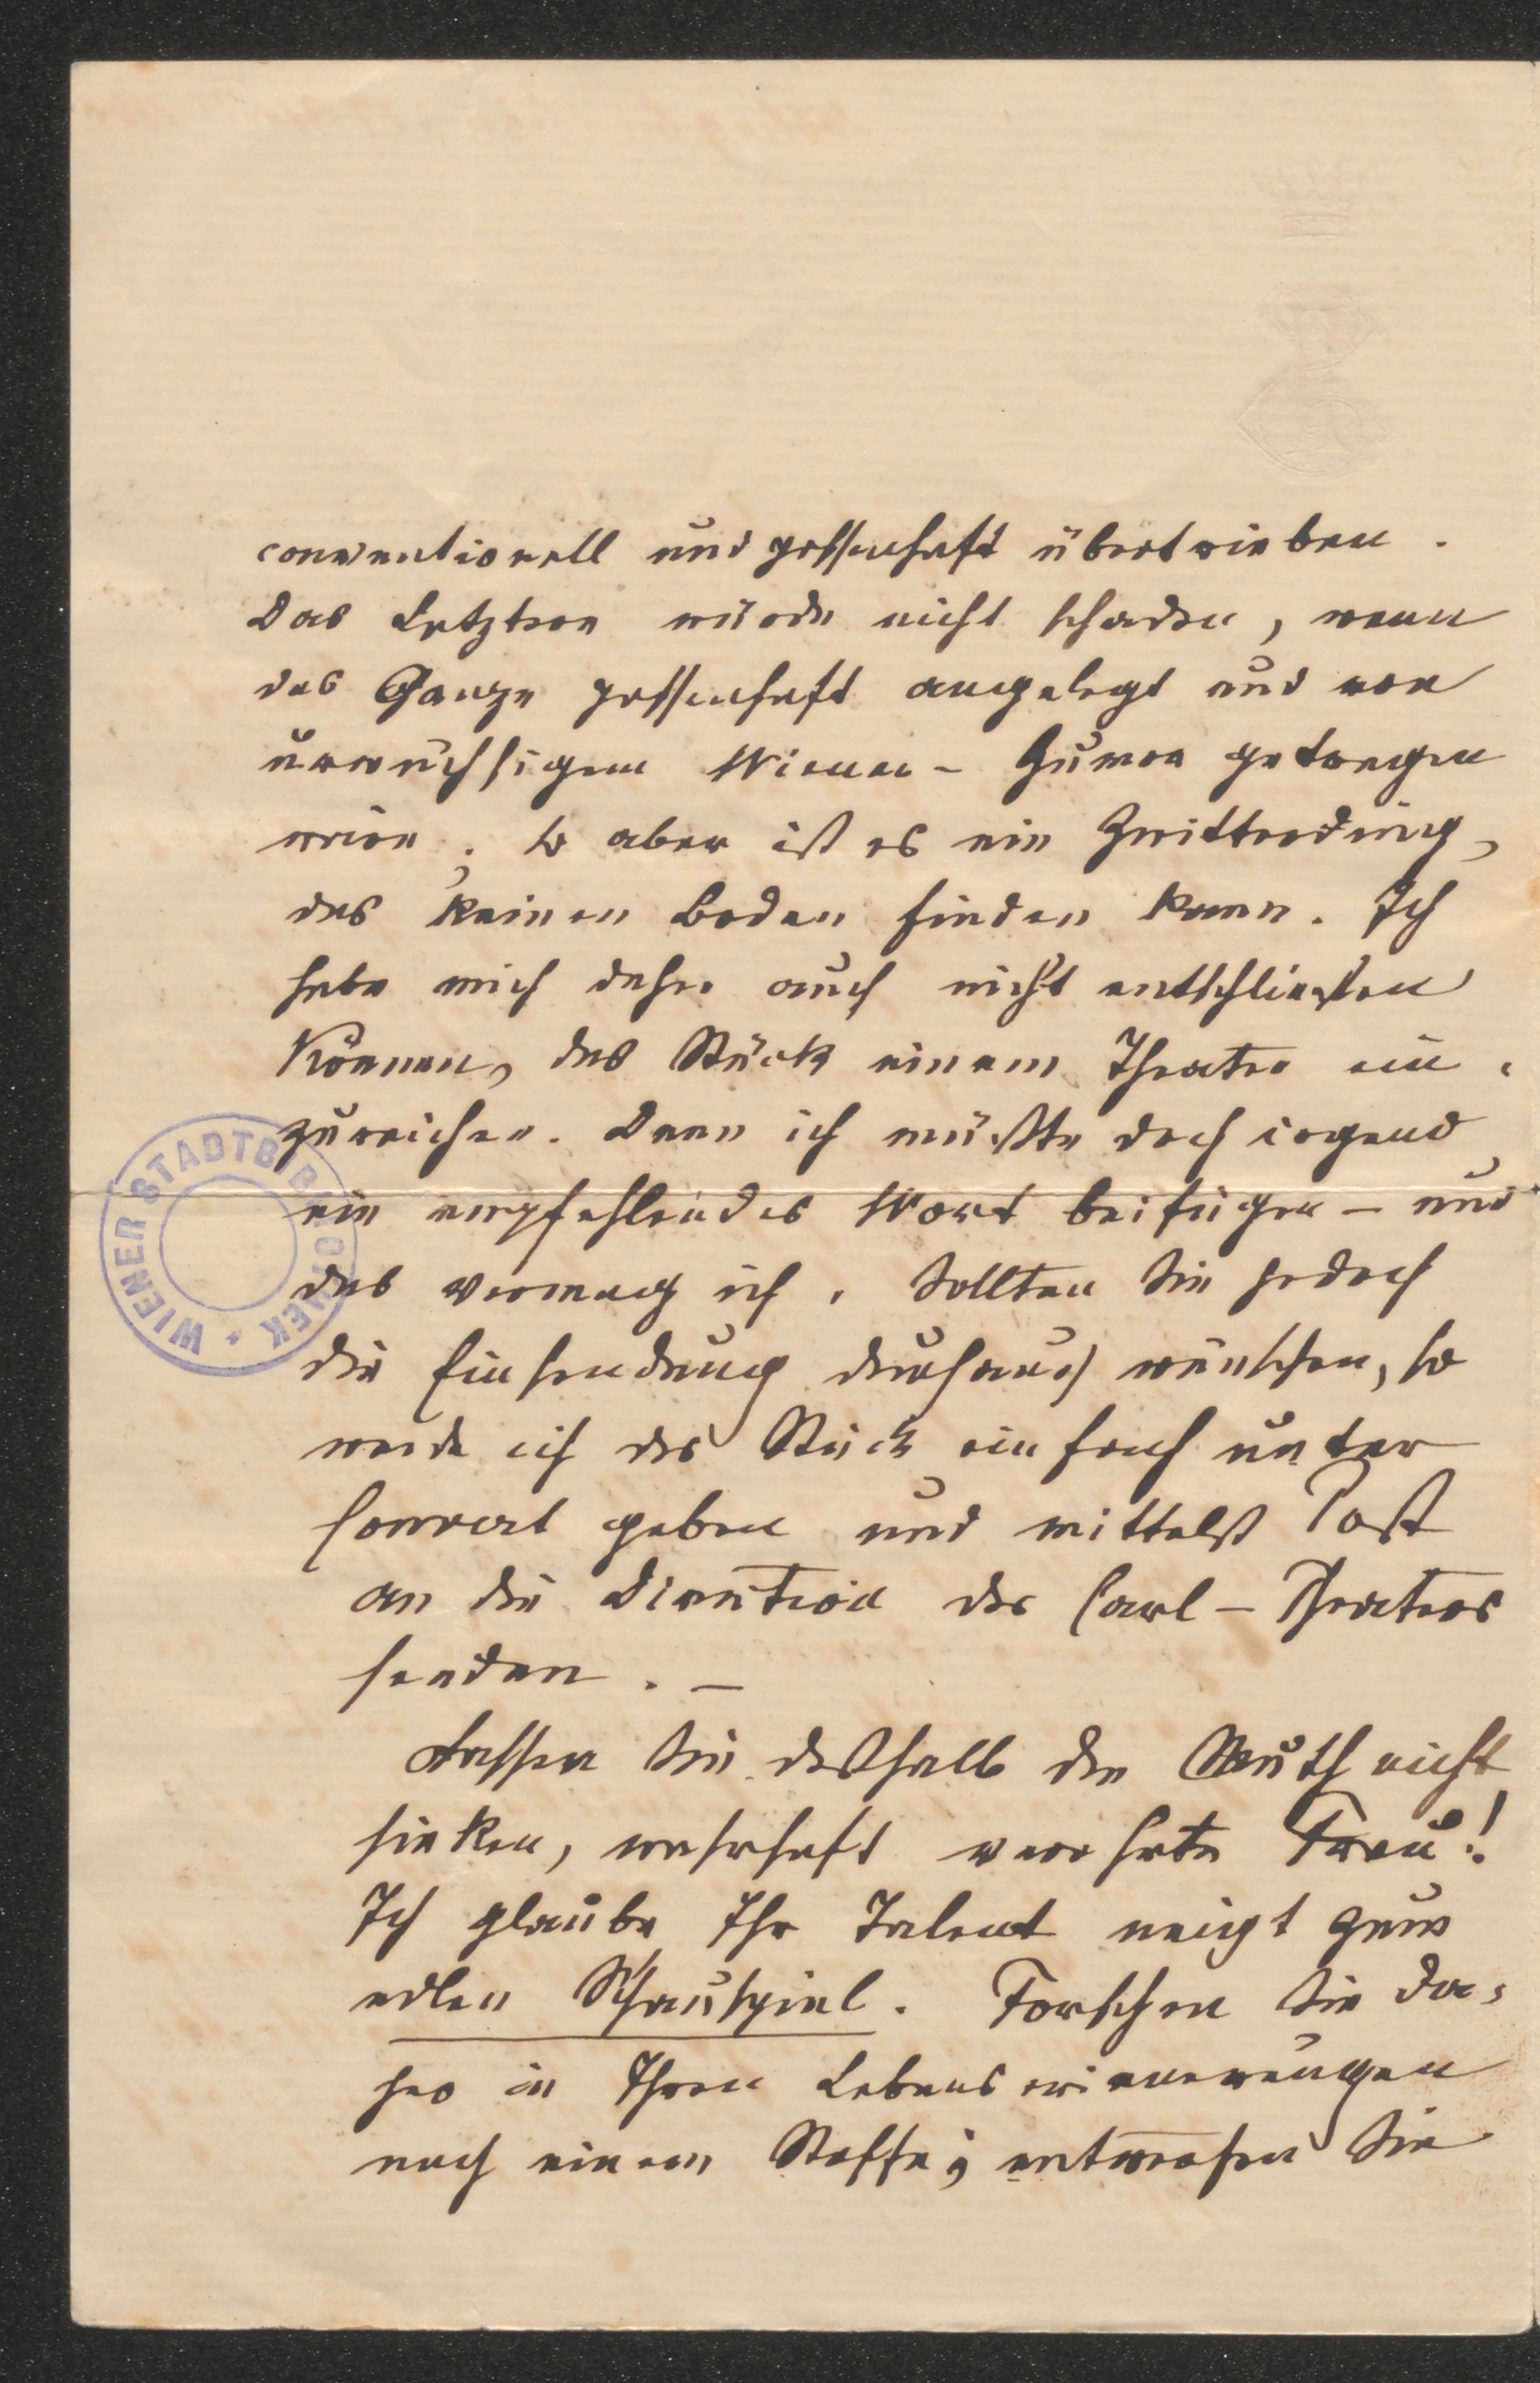 conventionell und possenhaft übertrieben.
Das Letztere würde nicht schaden, wenn
das Ganze possenhaft angelegt und von
urwüchsigem Wiener-Humor getragen
wäre. So aber ist es ein Zwitterding,
das keinen Boden finden kann. Ich
habe mich daher auch nicht entschließen
können, das Stück einem Theater ein-
zureichen. Denn ich müßte doch irgend
ein empfehlendes Wort beifügen – und
das vermag ich. Sollten Sie jedoch
die Einsendung durchaus wünschen, so
werde ich das Stück einfach unter
Couvert geben und mittelst Post
an die Direction des Carl-Theaters
senden. –
Lassen Sie deßhalb den Muth nicht
sinken, wahrhaft verehrte Frau!
Ich glaube Ihr Talent neigt zum
edlen Schauspiel. Forschen Sie da-
her in Ihren Lebenserinnerungen
nach einem Stoffe; entwerfen Sie
WIENER STADTBIBLIOTHEK *